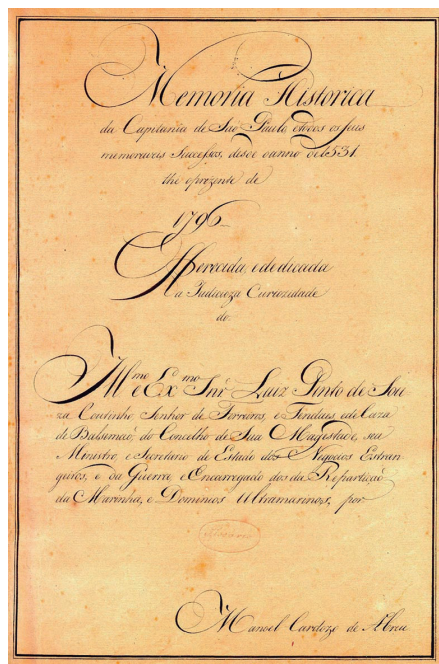 Memoria Historica
da Capitania de São Paulo, e todos os seus
memoraveis Successos, desde o anno de 1531.
the o prezente de
1796
Offerecida, e dedicada
a Judicioza Curiozidade
do
Illmo e Exmo Snr Luiz Pinto de Sou
za Coutinho, Senhor de Ferreiros, e Tendais, e de Caza
de Balsemaõ, do Concelho de Sua Magestade, seu
Ministro, e Secretario de Estado dos Negocios Estran
geiros, e da Guerra, e Encarregado dos da Repartiçaõ
da Marinha, e Dominios Ultramarinos, por
Manoel Cardozo de Abreu